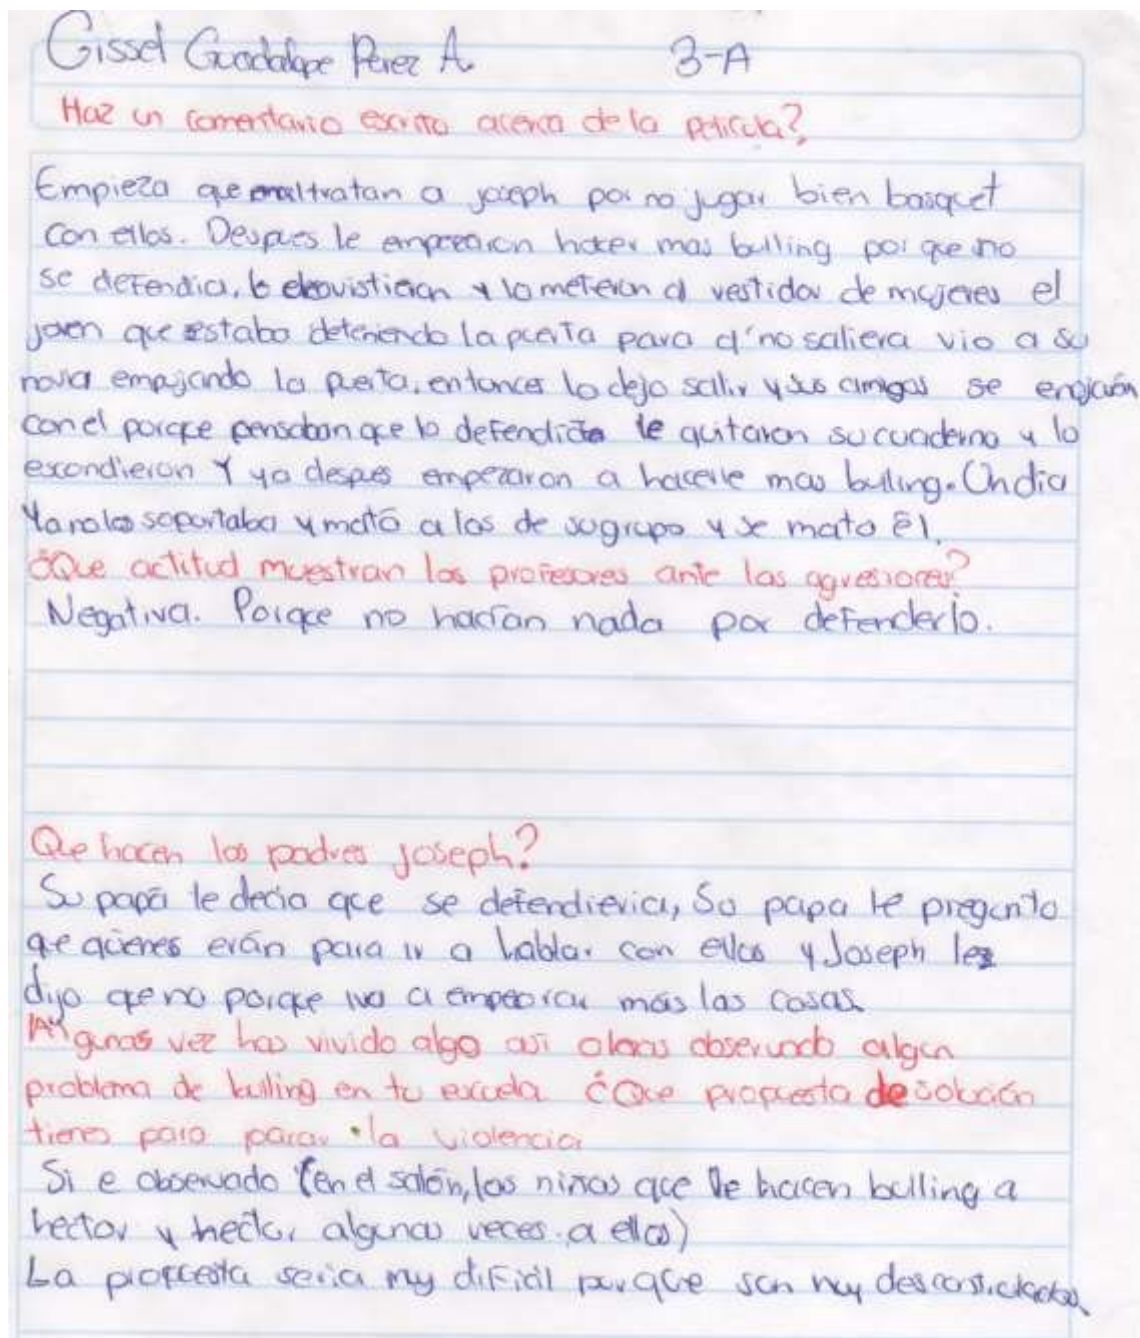 Gissel Guadalupe Perez A. 3-A
Haz un comentario escrito acerca de la pelicula?
Empieza que maltratan a joseph por no jugar bien basquet
con ellos. Despues le empezaron hacer mas bulling por que no
se defendia, lo desvistieron y lo metieron al vestidor de mujeres el
joven que estaba deteniendo la puerta para q' no saliera vio a su
novia empujando la puerta, entonces lo dejo salir y sus amigos se enojarón
con el porque pensaban que lo defendida le quitaron su cuaderno y lo
escondieron Y ya despues empezaron a hacerle mas bulling. Un dia
Ya no los soportaba y mató a los de su grupo y se mato él.
¿Que actitud muestran los profesores ante las agresiones?
Negativa. Porque no hacían nada por defenderlo.
Que hacen los padres joseph?
Su papá le decia que se defendieria, Su papa le pregunto
que quienes erán para ir a hablar con ellos y Joseph les
dijo que no porque iva a empeorar más las cosas.
Algunas vez has vivido algo asi o has observado algun
problema de bulling en tu escuela ¿Que propuesta de solución
tienes para parar la violencia
Si e observado (en el salón, los niños que le hacen bulling a
hector y hector algunas veces a ellos)
La propuesta seria muy dificil porque son muy